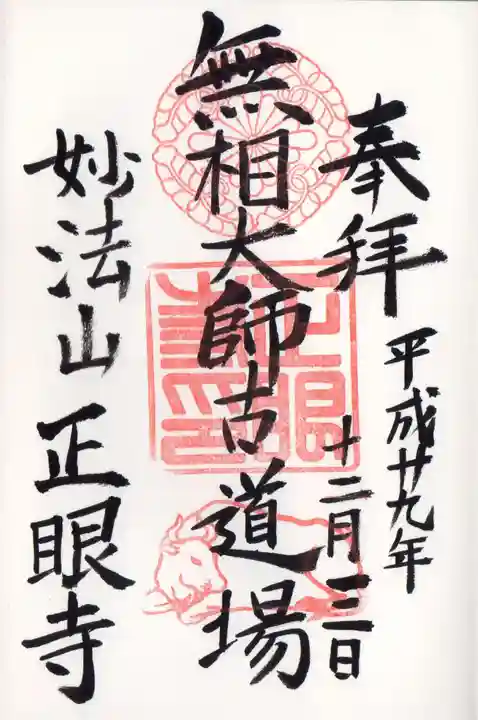 奉拝
平成廿九年
十二月三日
無相大師古道場
妙法山正眼寺